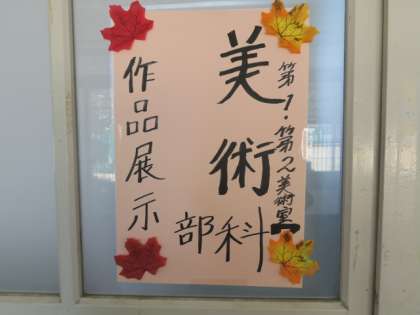 第1・第2美術室
美術
部科
作品展示